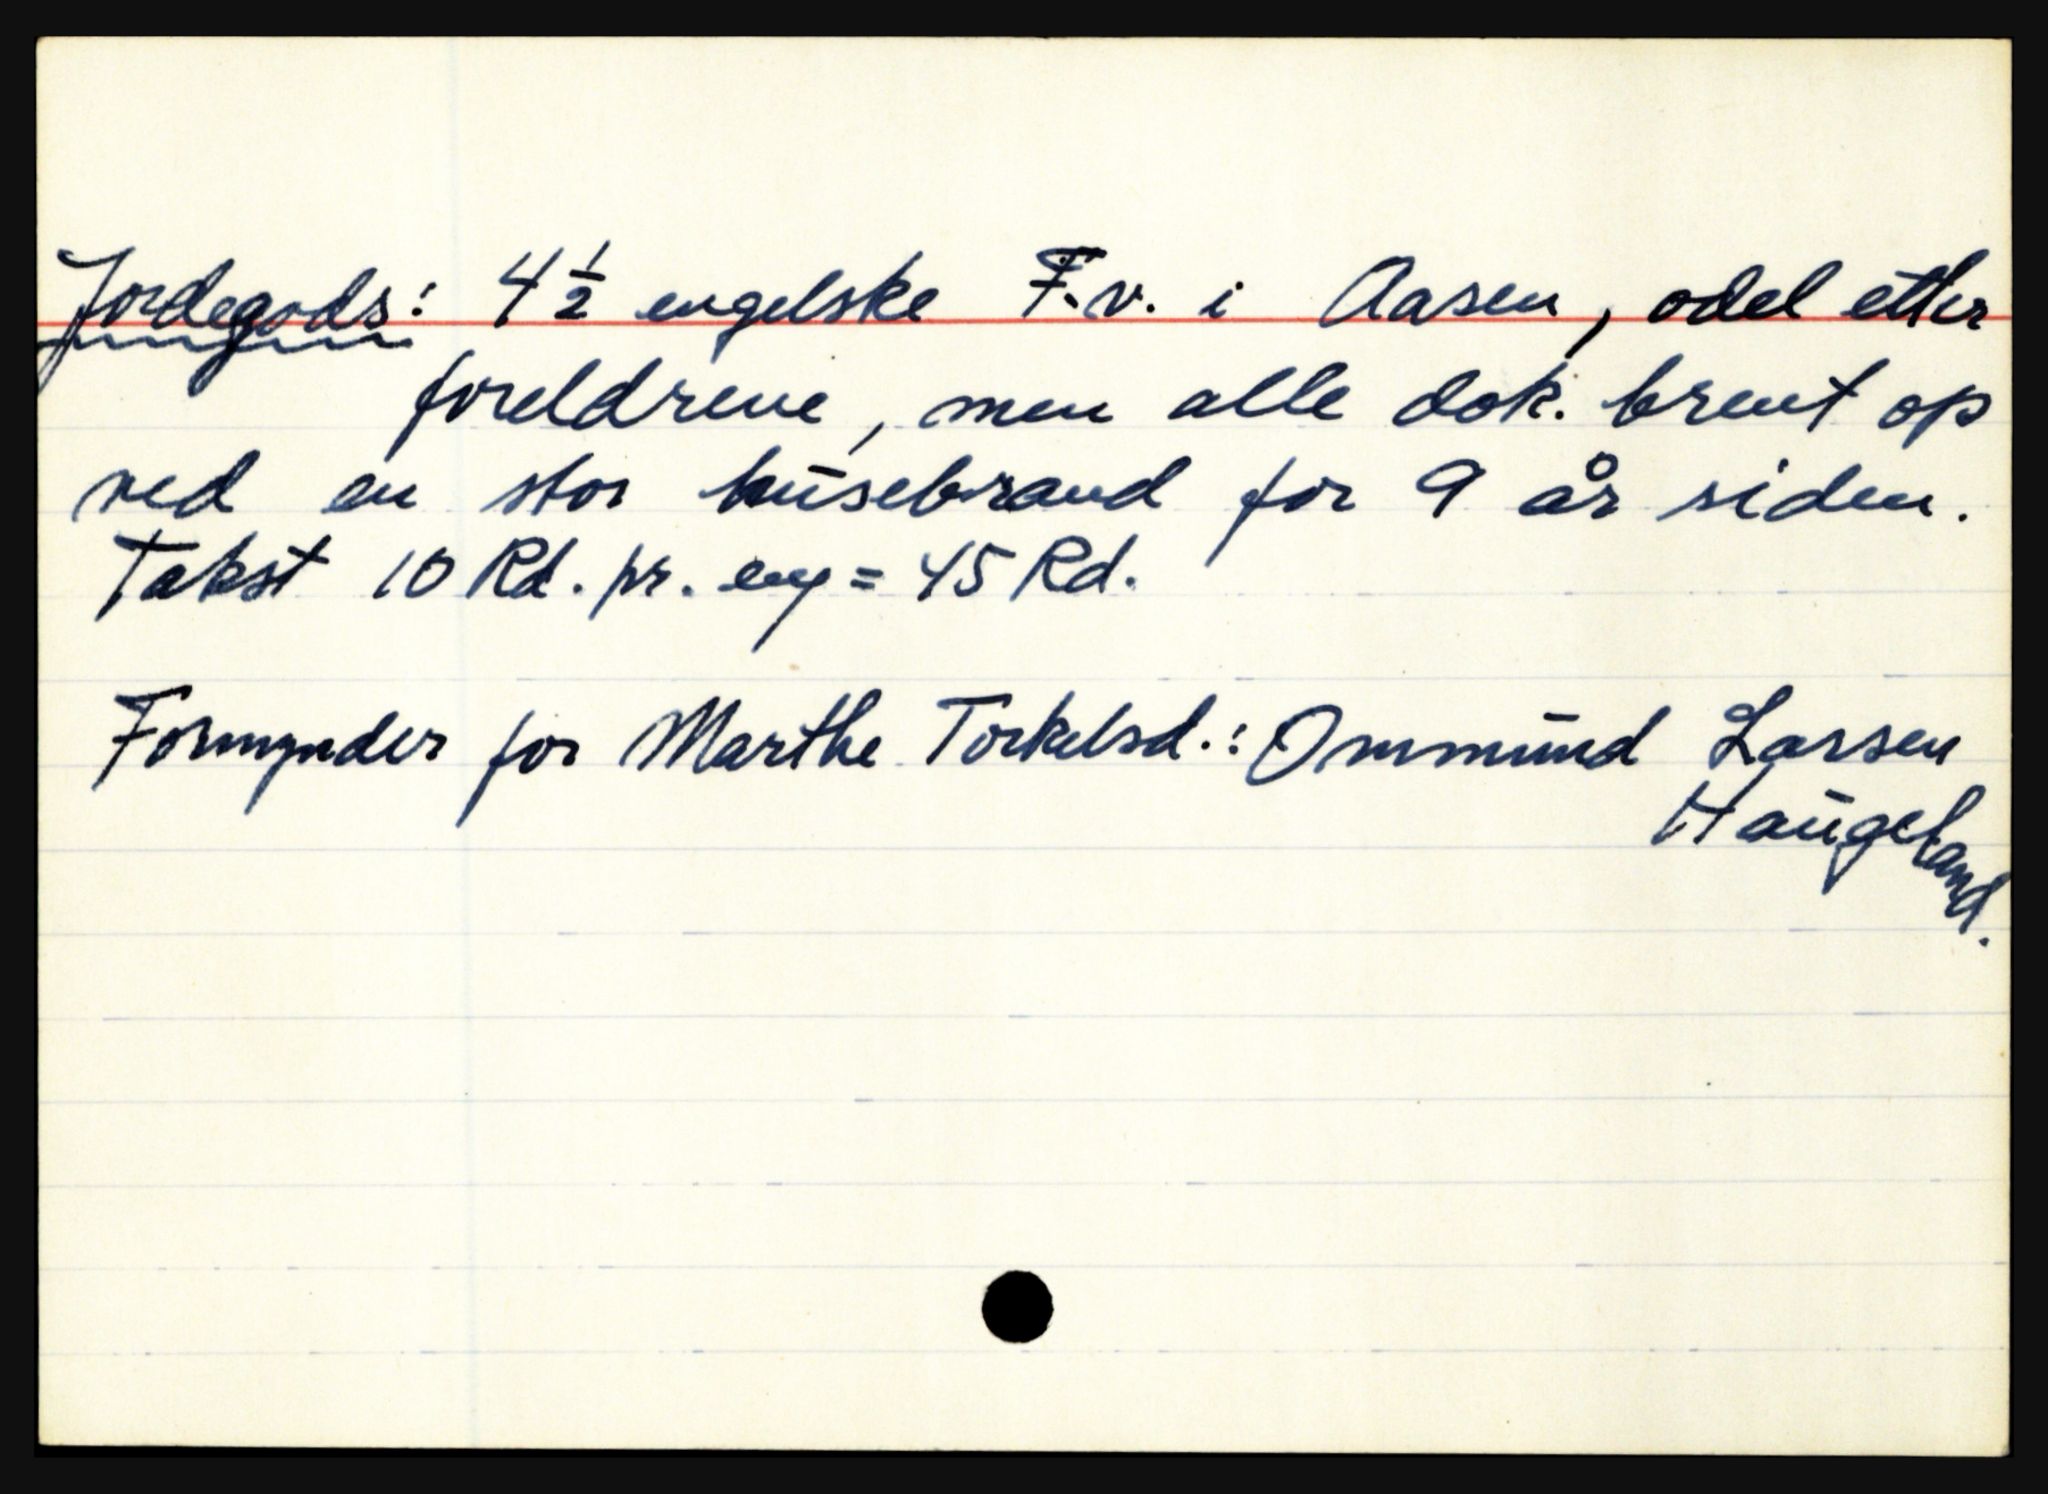 Jordegods: 4 1/2 engelske F.v. i Aasen, odel etter
foreldrene, men alle dok. brent op
ved en stor husebrand for 9 år siden.
Takst 10 Rd. pr. eng = 45 Rd.
Formynder for Marthe Torkelsd.: Ommund Larsen
Haugeland.